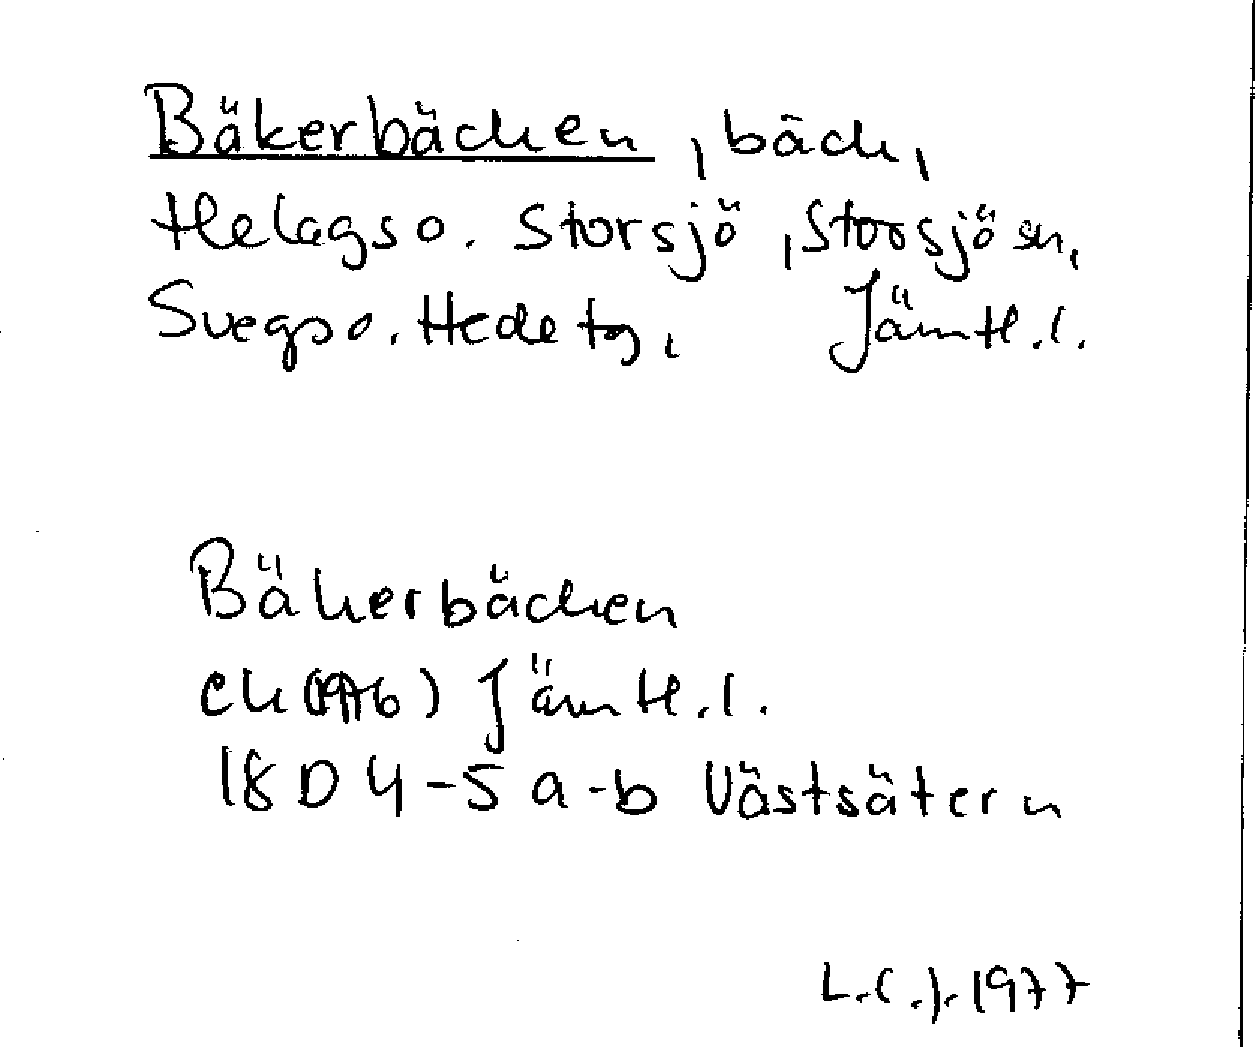 Bäkerbäcken, bäck,
Helagso. Storsjö, Storsjö sn,
Svegs o. Hede tg, Jämtl.l.
Bäkerbäcken
ek (1976) Jämtl.l.
18 D 4-5 a-b Västsätern
L.C.J. 1977